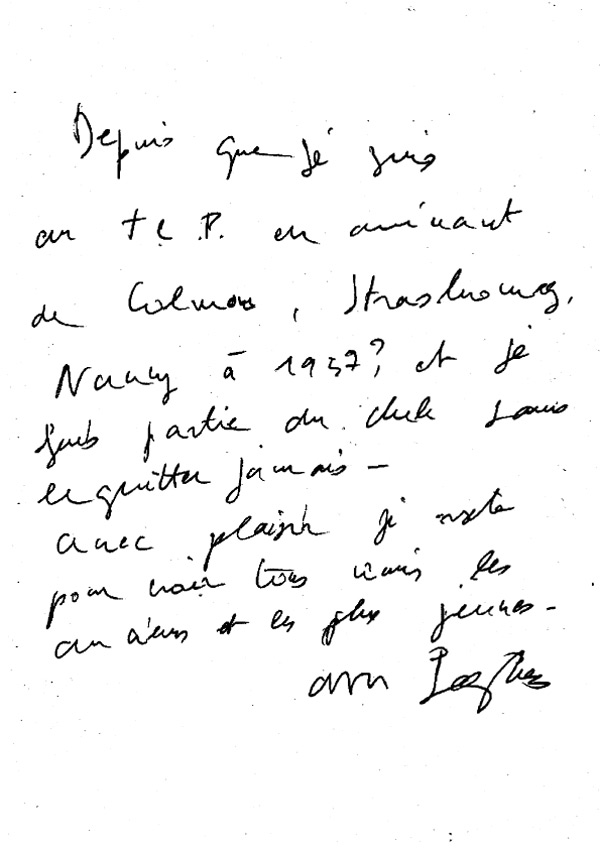 Depuis que je suis
au T.C.P. en arrivant
de Colmar, Strasbourg,
Nancy à 1957, et je
fais partie du club sans
le quitter jamais -
avec plaisir je reste
pour voir tous amis les
anciens et les plus jeunes -